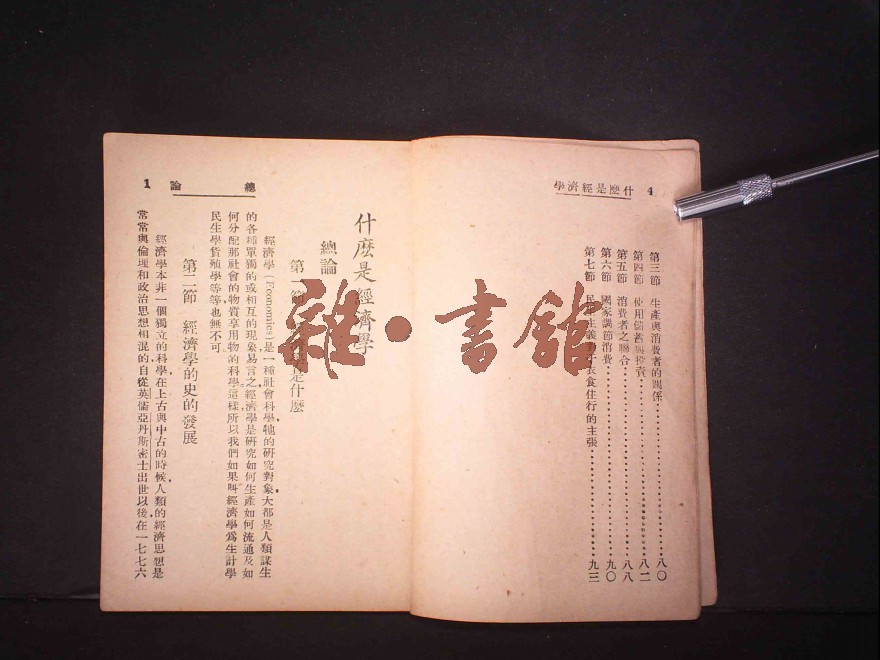 4 什麽是經濟學
第三節 生產與消費者的關係……八〇
第四節 使用儲蓄與投資……八二
第五節 消費者之聯合……八八
第六節 國家調節消費……九〇
第七節 民生主義對于衣食住行的主張……九三
總論 1
什麽是經濟學
總論
第一節 經濟學是什麽
經濟學(Economics)是一種社會科學,牠的研究對象,大都是人類謀生
的各種單獨的或相互的現象,易言之,經濟學是研究如何生產如何流通及如
何分配那社會的物質享用物的科學,這樣,所以我們如果叫經濟學爲生計學
民生學貨殖學等等也無不可.
第二節 經濟學的史的發展
經濟學本非一個獨立的科學,在上古與中古的時候,人類的經濟思想是
常常與倫理和政治思想相混的,自從英儒亞丹斯密士出世以後,在一七七六
雜·書館